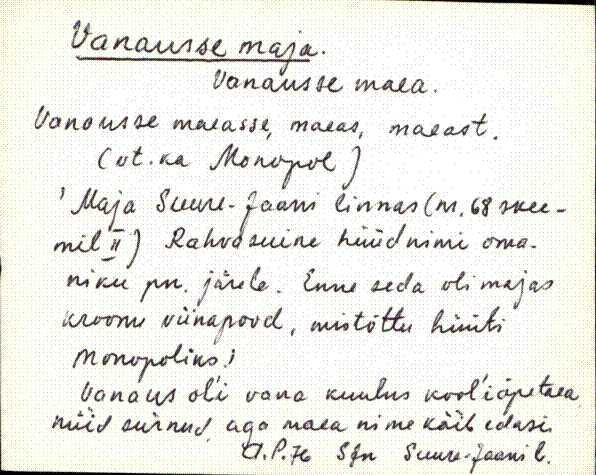 Vanausse maja.
Vanausse maea.
Vanausse maeasse, maeas, maeast.
(vt. ka Monopol)
' Maja Suure-Jaani linnas (nr. 68 skee-
mil II) Rahvasuine hüüdnimi oma-
niku pn. järele. Enne seda oli majas
kroonu viinapood, mistõttu hüüti
Monopoliks.'
Vanaus ol'i vana kuulus kool'iõpetaea,
nüid surnud, aga maea nime käib edasi
Suure-Jaani l.